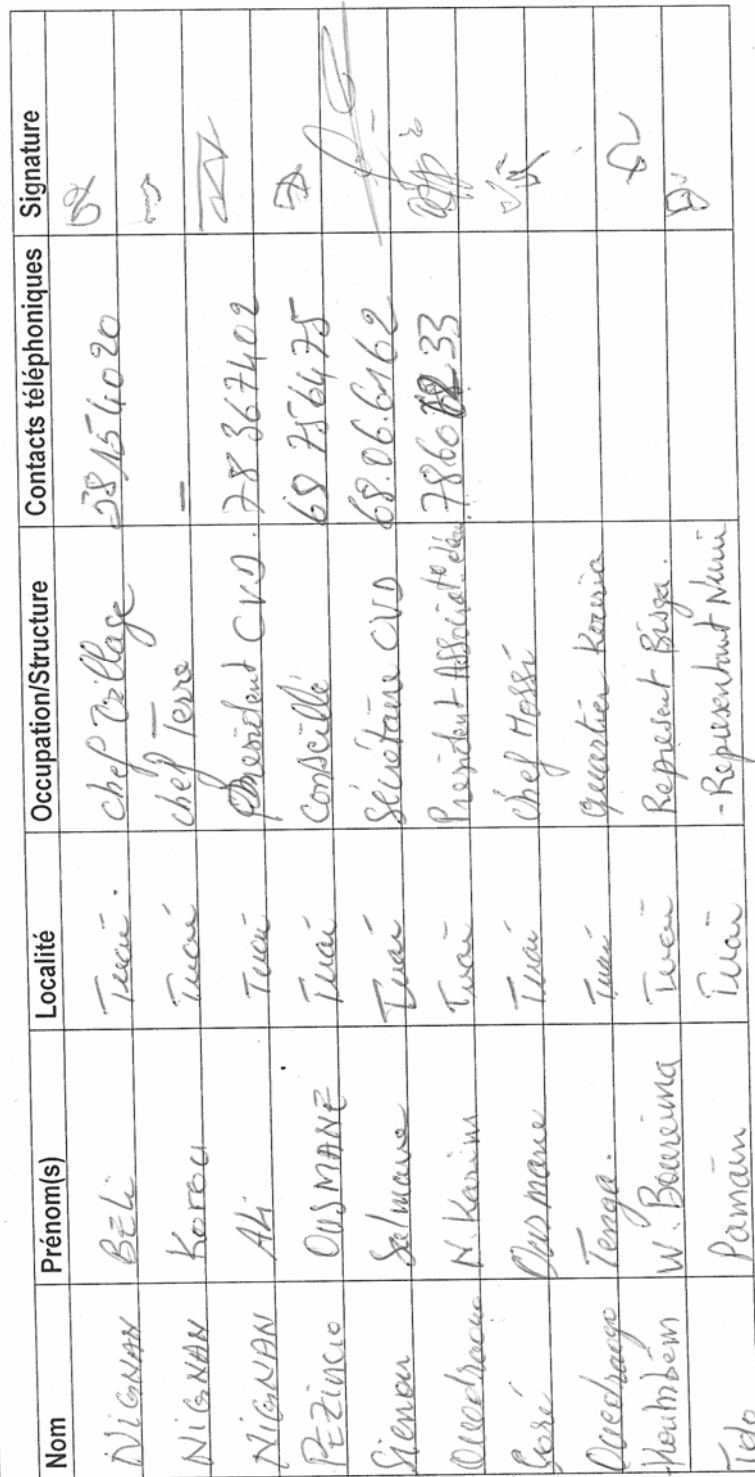 Nom Prénom(s) Localité Occupation/Structure Contacts téléphoniques Signature
NIGNAN BELi Tuaï. chef Village 58154020
NIGNAN Korou Tuaï chef Terre —
NIGNAN Ali Tuaï Président CVD. 78367402
PEZiNGO OUSMANE Tuaï Conseillé 68756475
Sienou Salmane Tuaï Sécrétaire CVD 68.06.61.62
Ouedraogo N. Karim Tuaï President Associat° 7860 33
Goré Ousmane Tuaï Chef Mossi
Ouedraogo Tenga. Tuaï quartier
W. Boureima Tuaï Represent Bisga.
Ido Pamaïn Tuaï - Representant Nuni